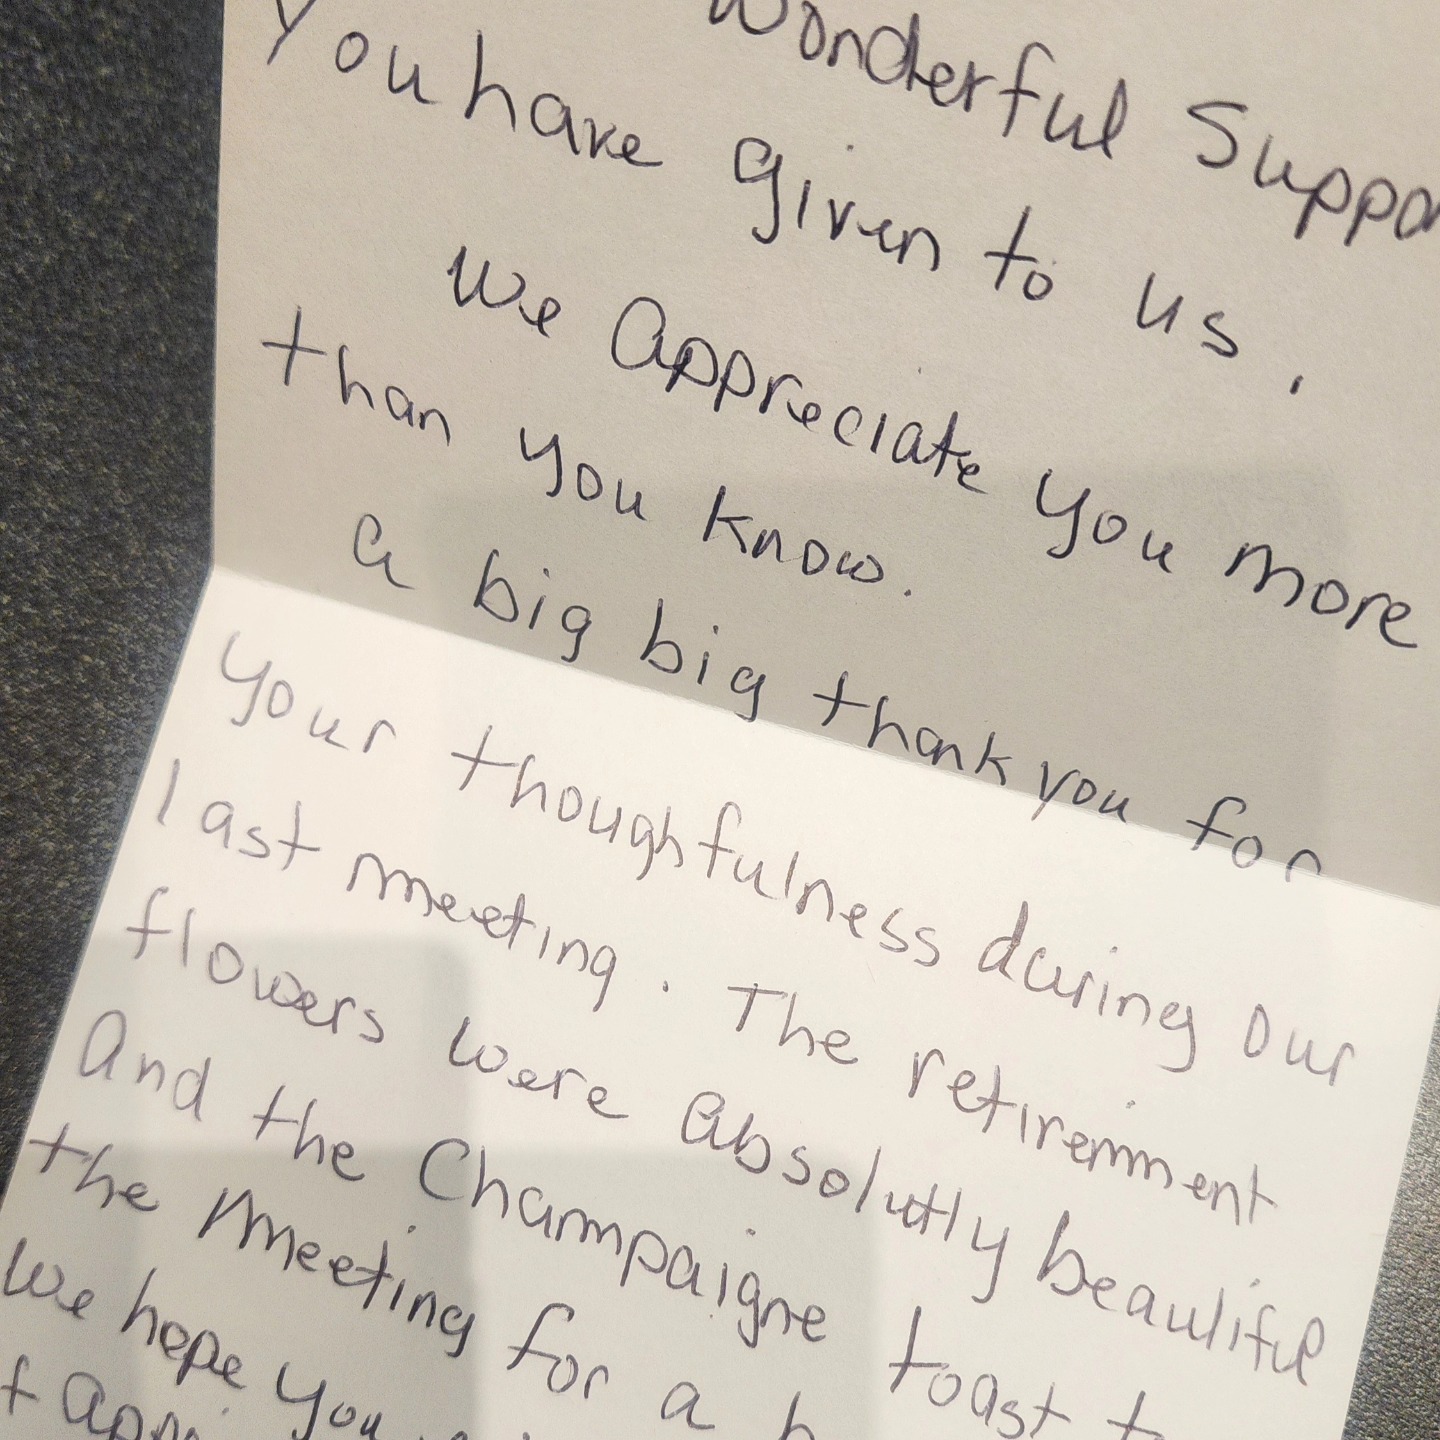 Wonderful
You have given to us.
We Appreciate you more
than you know.
a big big thank you for
your thoughtfulness during our
last meeting. The retiremment
flowers were absolutly beautiful
And the Champaigne toast
the Meeting for a
We hope you